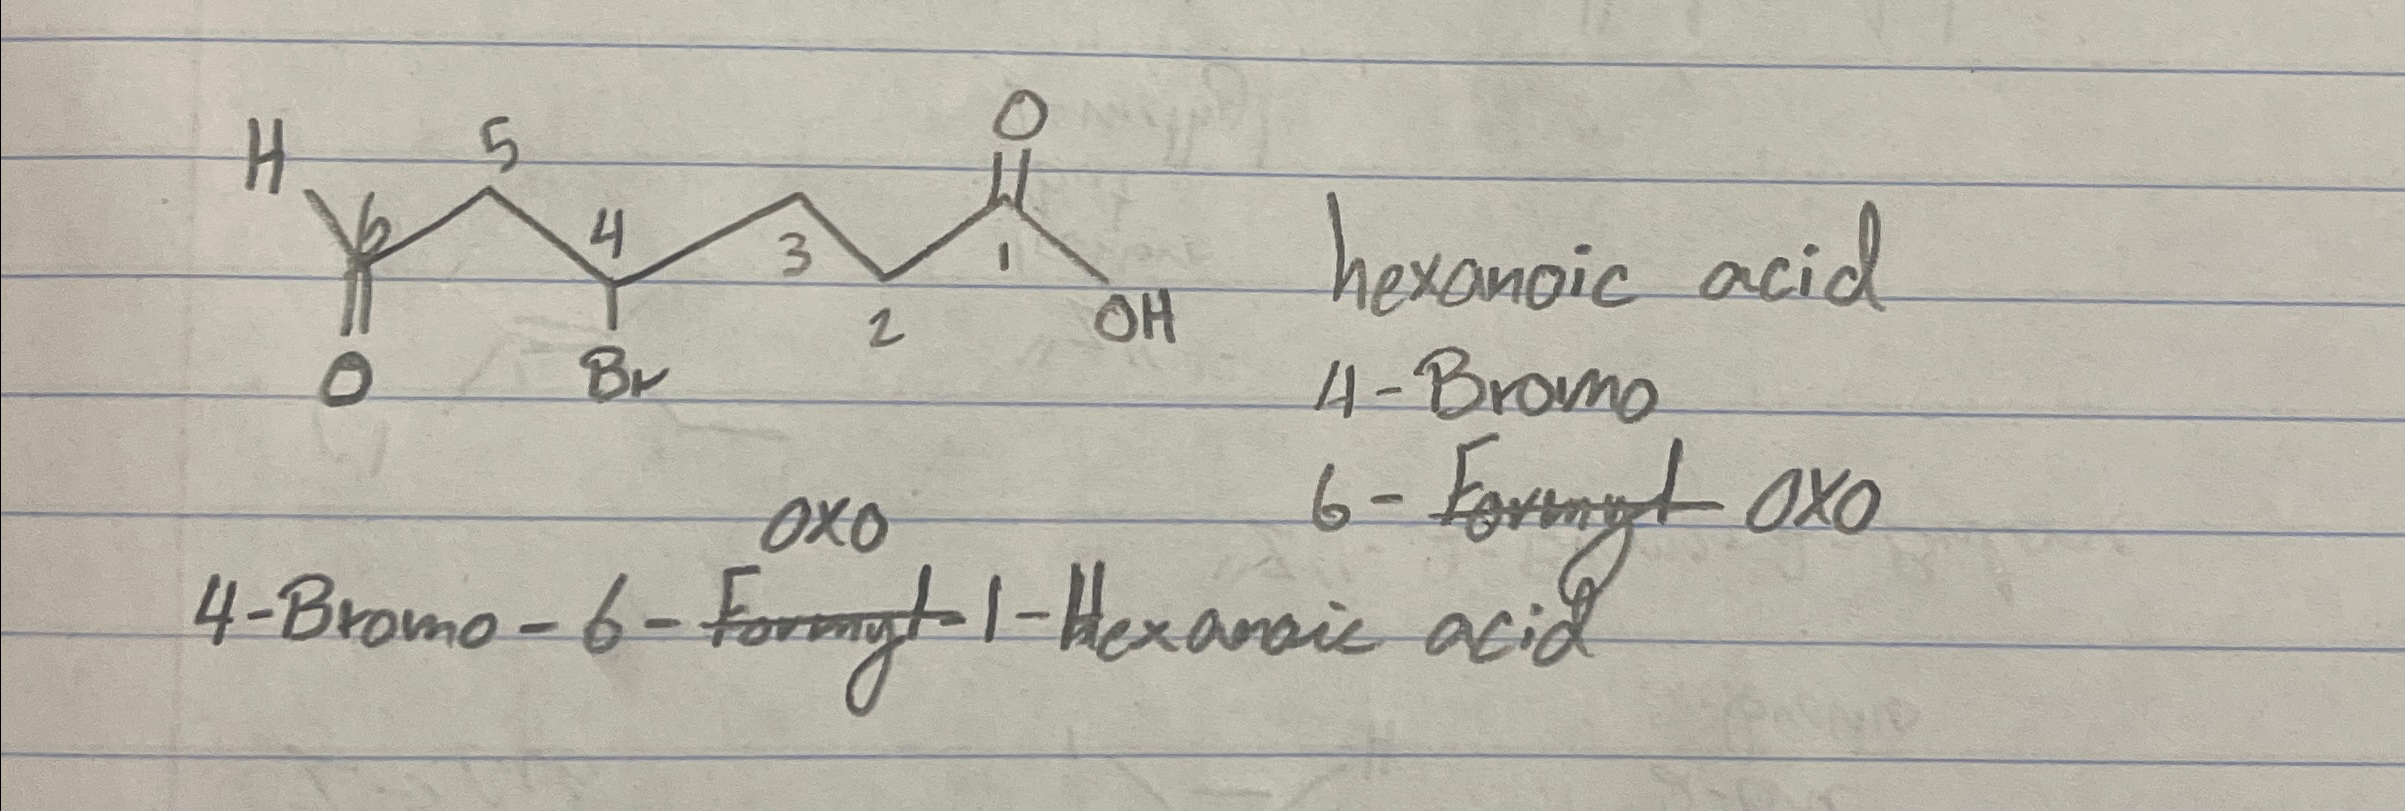 H 5 O
6 4 3 1
O Br 2 OH
hexanoic acid
4-Bromo
6-Formyl OXO
OXO
4-Bromo-6-Formyl-1-Hexanoic acid